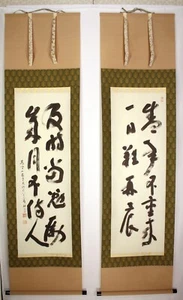 盛年不重来
一日難再晨
及時当勉励
歳月不待人